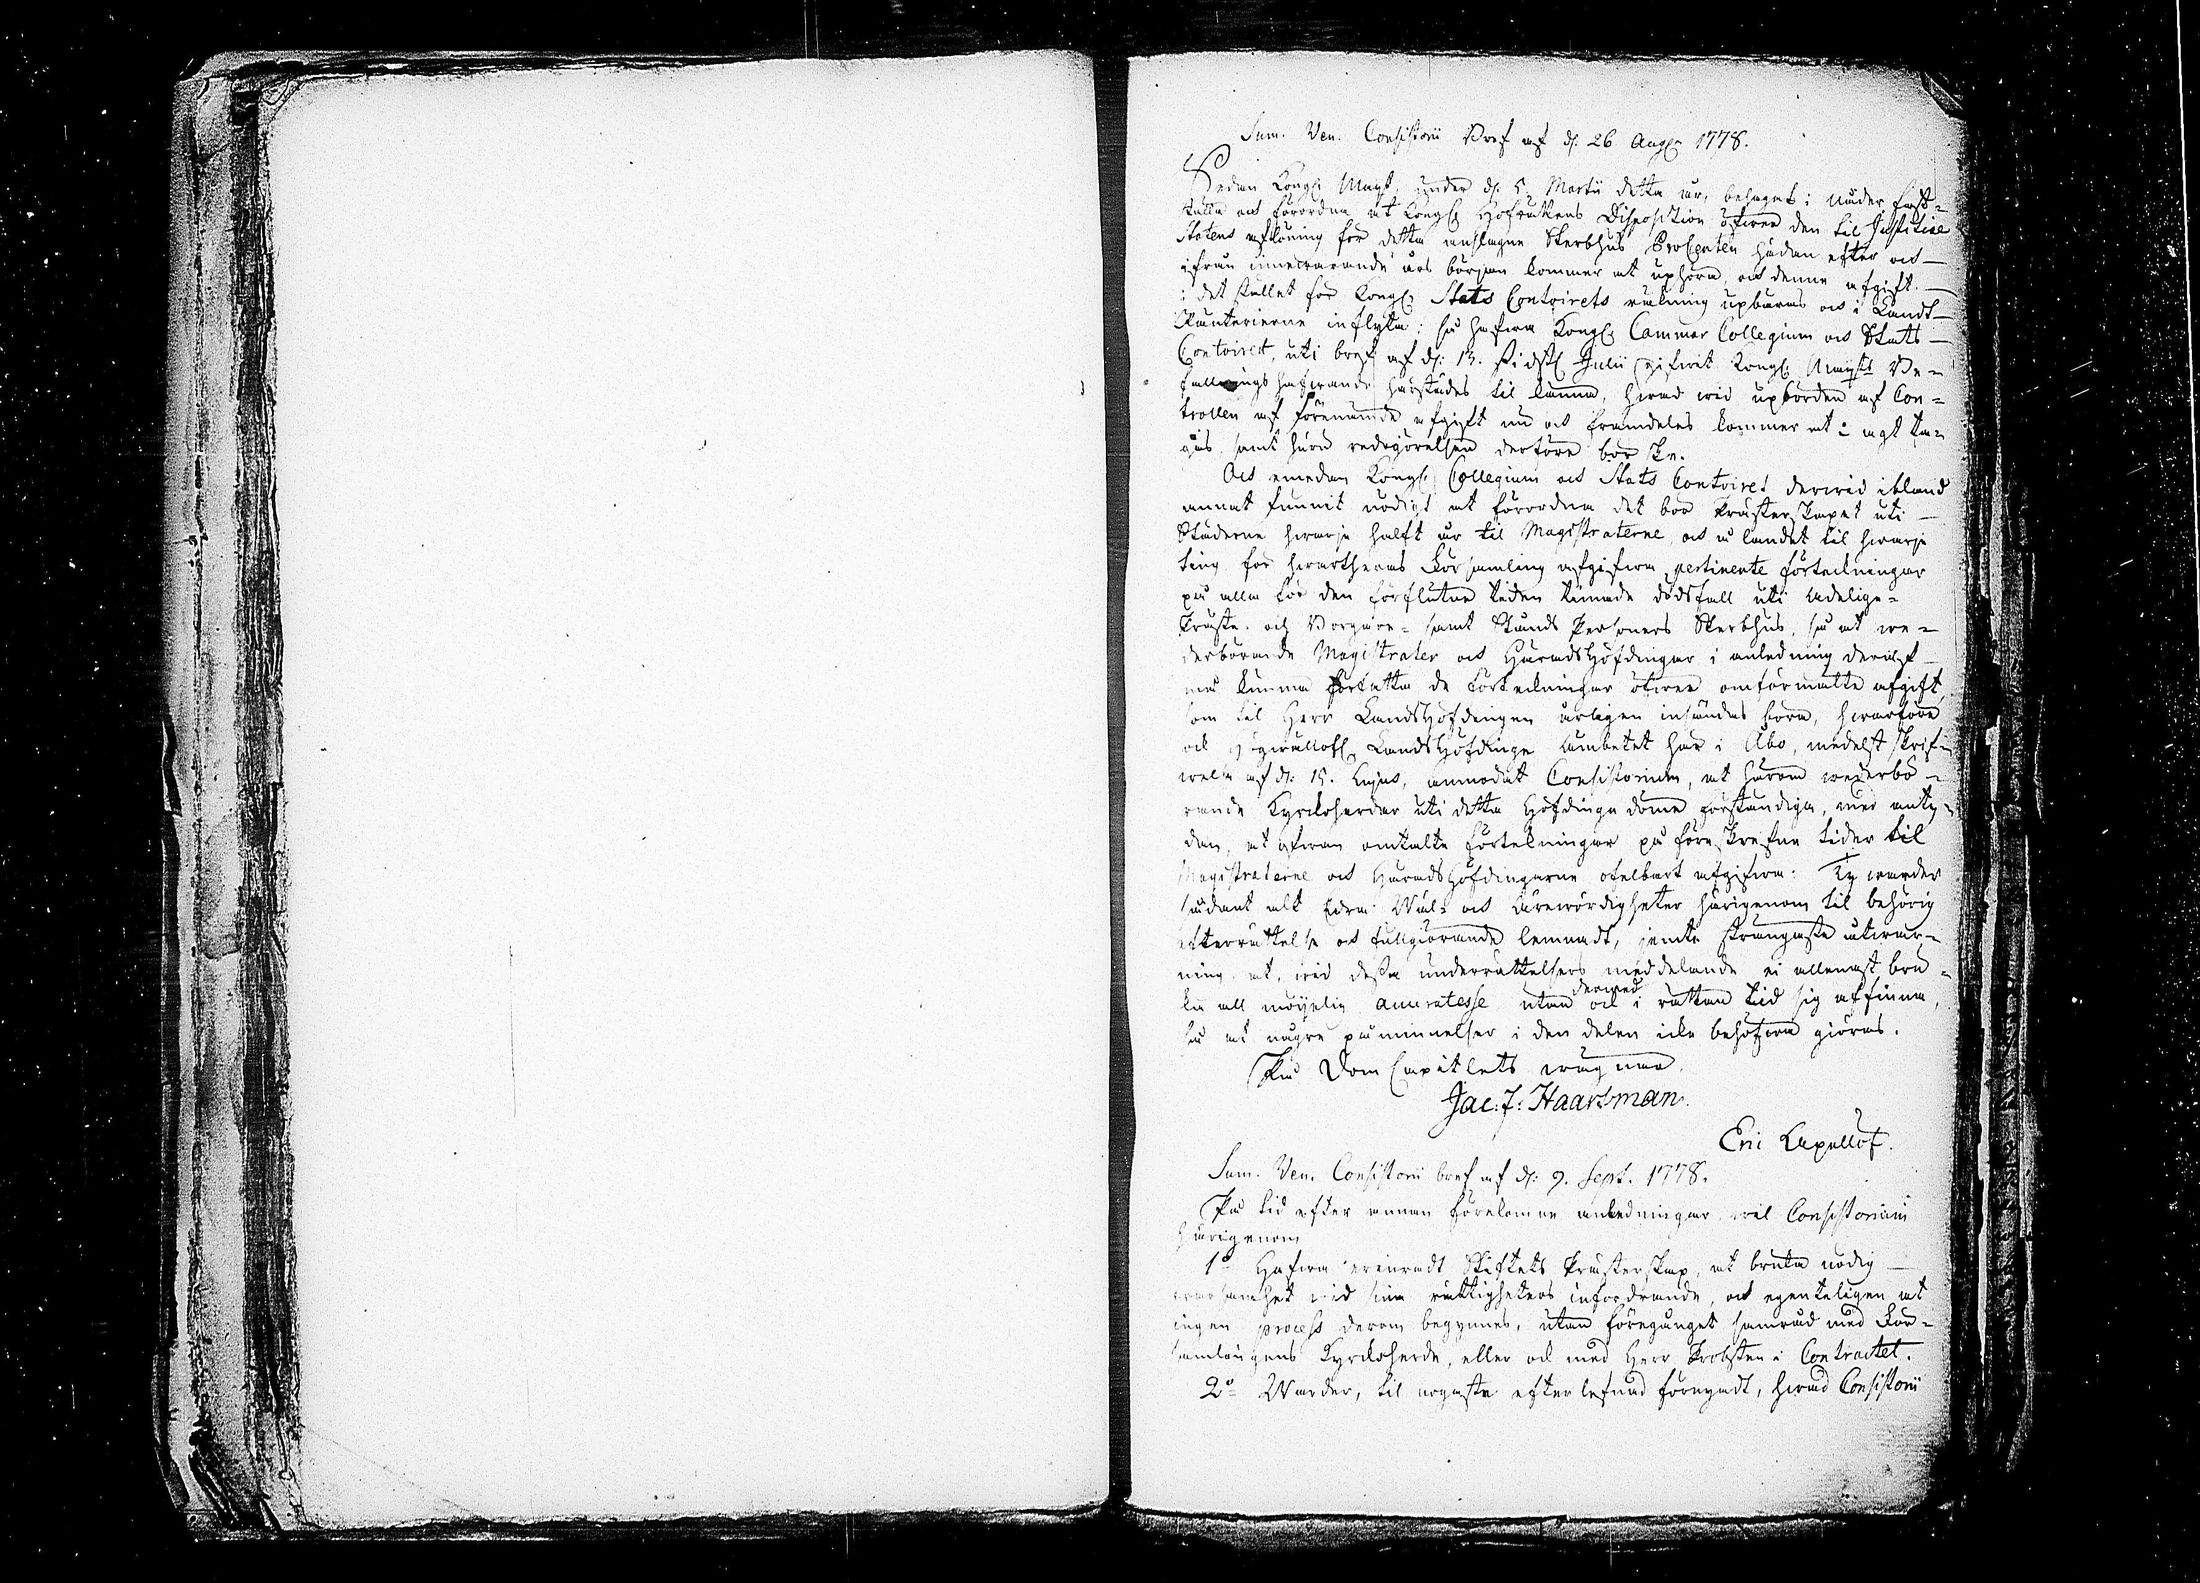 Sum. Ven. Consistorii Bref af d. 26 Aug. 1778.
Sedan Kongl. Mayt, under d. 5. Martii detta år, behagat i nåder fast-
ställa och förordna at Kongl. Hofrättens Disposition öfwer den til Justitiæ
Statens aflöning för detta anslagne Sterbhus Procenten hädan efter och
ifrån innewarande års början kommer at uphöra, och denne afgift
i det stället för Kongl. Stats Contoirets räkning upbäras och i Landt
Ränterierne inflyta; så hafwa Kongl. Cammar Collegium och Stats
Contoiret, uti bref af d. 13. sidstl. Julii gifwit Kongl. Mayts Be-
fallningshafwande härstädes til känna, hwad wid upbörden af Con-
trollen af förenämde afgift nu och framdeles kommer at i agt ta-
gas, samt huru redogörelsen derföre bör ske.
Och emedan Kongl. Collegium och Stats Contoiret derwid ibland
annat funnit nödigt at förordna det bör Prästerskapet uti
Städerne hwarje halft år til Magistraterne, och å landet til hwarje
ting för hwartheras Församling afgifwa pertinente förteckningar
på alla för den förflutne tiden timade dödsfall uti Adelige-
Präste- och Borgare- samt Stånds Personers Sterbhus, så at we-
derbörande Magistrater och Häradshöfdingar i anledning deraf
må kunna författa de förteckningar öfwer omförmälte afgift,
som til Herr Landshöfdingen årligen insändas böra, hwarföre
och Högwällofl. Landshöfdinge Ämbetet här i Åbo, medelst skrif-
welse af d. 15. hujus, anmodat Consistorium, at härom wederbö-
rande Kyrckoherdar uti detta Höfdinge döme förständiga, med anty-
dan, at ofwan omtalte förtekningar på föreskrefne tider til
Magistraterne och Häradshöfdingarne ofelbart afgifwa: Ty warder
sådant alt Edra Wäl- och Ärewördigheter härigenom til behörig
efterrättelse och fullgiörande lemnadt, jemte strängaste åtwar-
ning, at, wid dessa underrättelsers meddelande ej allenast bru-
ka all möyelig accuratesse utan ock dermed i rättan tid sig affinna,
så at några påminnelser i den delen icke behöfwa giöras.
På Dom Capitlets wägnar
Jac: J: Haartman.
Eric Lagellöf.
Sum. Ven. Consistorii bref af d. 9. Sept. 1778.
På tid efter annan förekomne anledningar wil Consistorium
härigenom
1o Hafwa erinradt Stiftets Prästerskap, at bruka nödig
warsamhet wid sina rättigheters infordrande, och egenteligen at
ingen process derom begynnes, utan föregånget samråd med För-
samlingens Kyrckoherde, eller ock med Herr Probsten i Contractet.
2o Warder, til nogaste efterlefnad förnyadt, hwad Consistorii